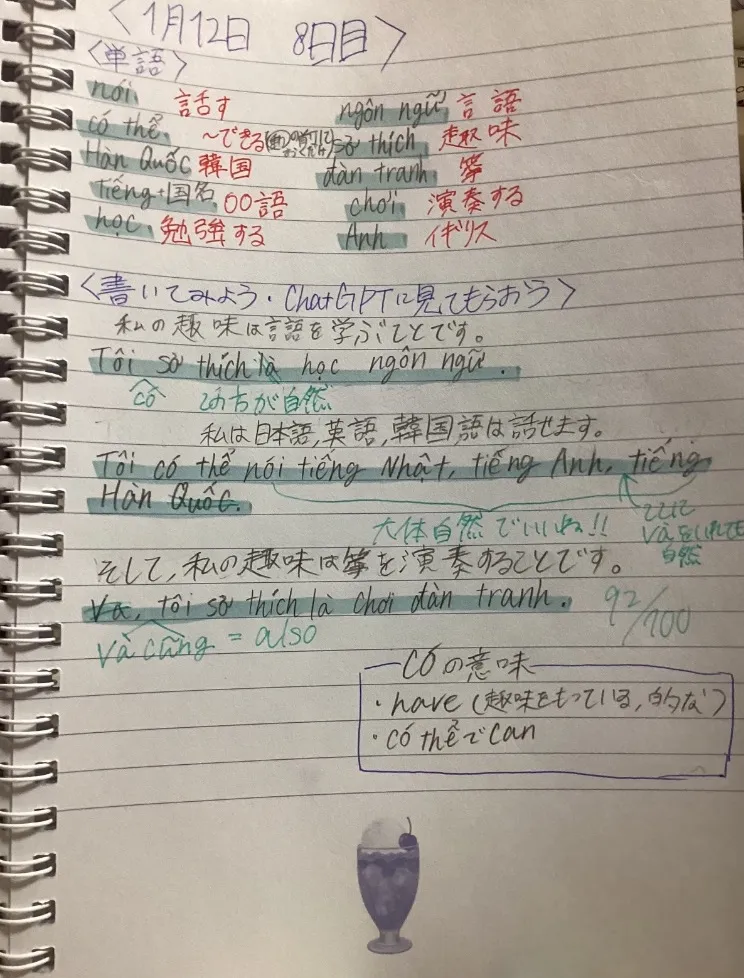 <1月12日 8日目>
<単語>
nói 話す ngôn ngữ 言語
có thể ~できる(動の前においておくだけ) sở thích 趣味
Hàn Quốc 韓国 đàn tranh 箏
tiếng+国名 〇〇語 chơi 演奏する
học 勉強する Anh イギリス
<書いてみよう・ChatGPTに見てもらおう>
私の趣味は言語を学ぶことです。
Tôi sở thích là học ngôn ngữ.
có この方が自然
私は日本語,英語,韓国語は話せます。
Tôi có thể nói tiếng Nhật, tiếng Anh, tiếng
Hàn Quốc.
大体自然でいいね!! ここに
vàをいれても
自然
そして,私の趣味は箏を演奏することです。
Và, tôi sở thích là chơi đàn tranh. 92/100
Và cũng = also
cóの意味
・have(趣味をもっている,的な)
・có thểでcan